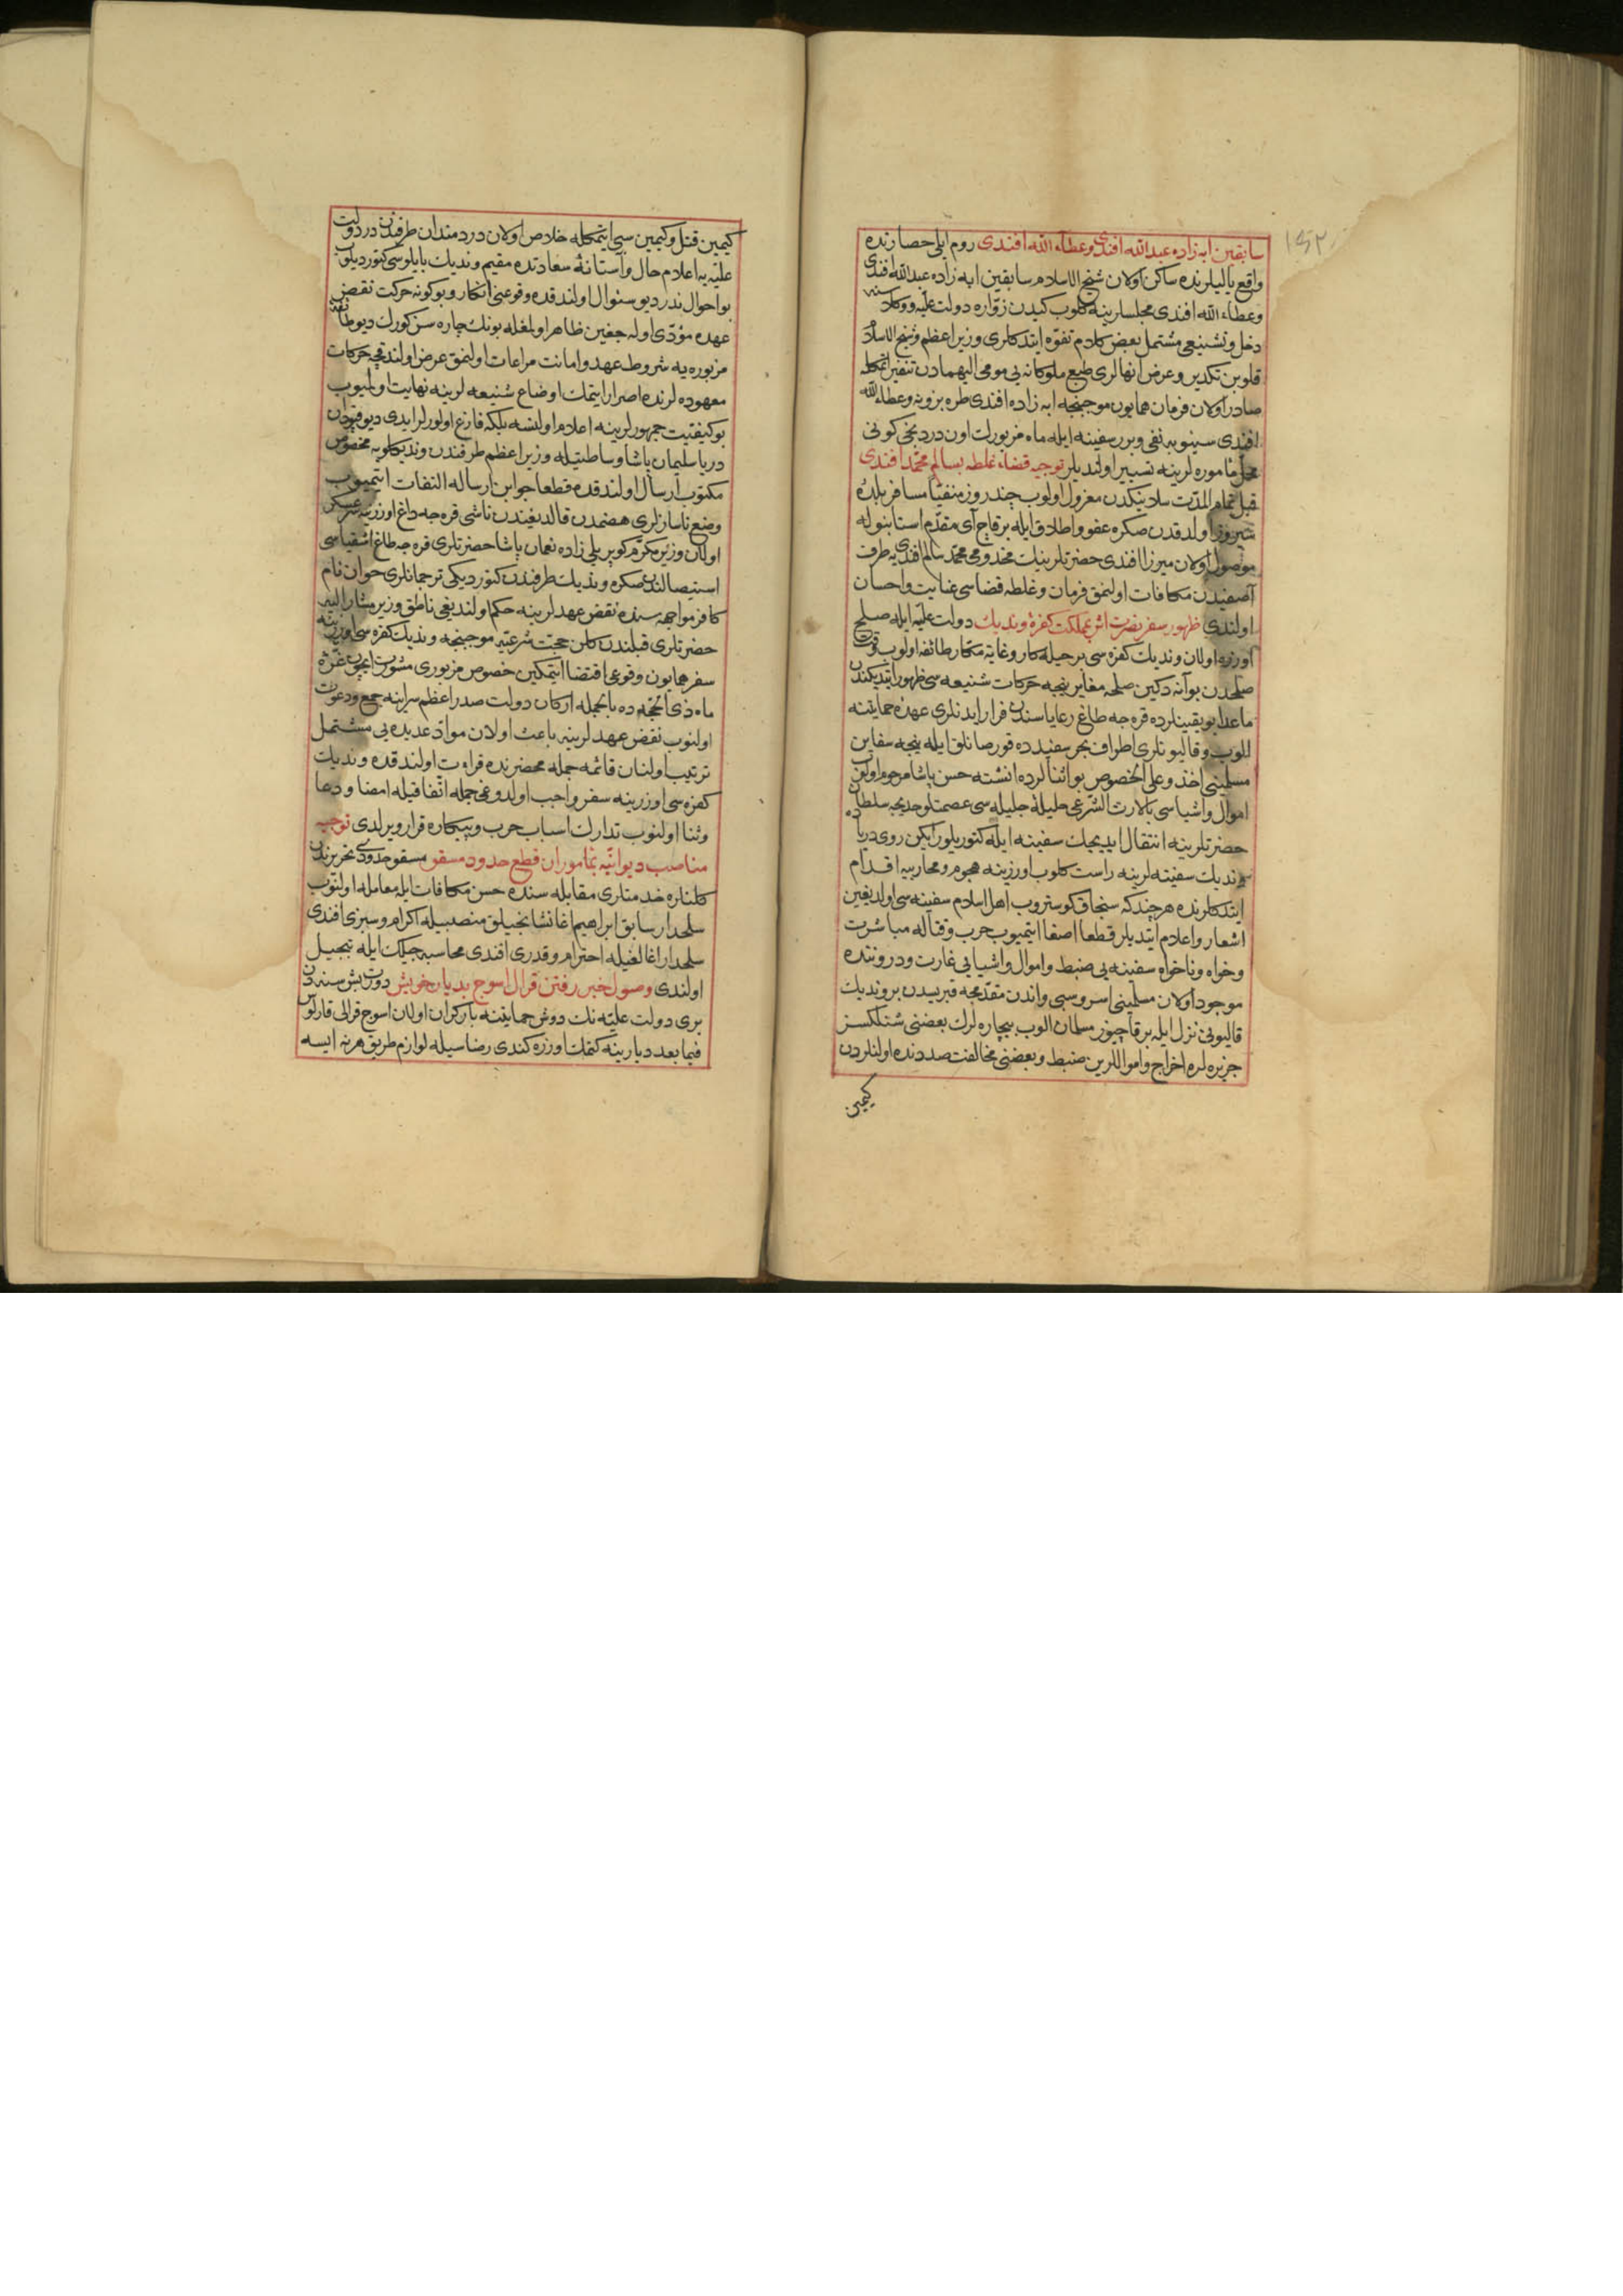 ١٤٢
سابقین ابه زاده عبدالله افندی وعطاء الله افندی روم ایلی حصارنده
واقع یالیلرنده ساکن اولان شیخ الاسلام سابقین ابه زاده عبدالله افندی
وعطاء الله افندی مجلسلرینه کلوب کیدن زواره دولت علیه ووکلاسنه
دخل وتشنیعی مشتمل بعض کلام تفوه ایتدکلری وزیر اعظم وشیخ الاسلام
قلوبن تکدیر وعرض وانهالری طبع ملوکانه یی مومی الیهمادن تنفیر اتمکله
صادر اولان فرمان همایون موجبنجه ابه زاده افندی طره بزونه وعطاء الله
افندی سینوبه نفی وبرر سفینه ایله ماه مزبورك اون دردنجی کونی
محل مأموره لرینه تسییر اولندیلر توجیه قضاء غلطه بسالم محمد افندی
قبل تمام المدت سلانیکدن معزول اولوب چند روز منفیا مسافر بلده
شیروز اولدقدن صکره عفو واطلاق ایله برقاج آی مقدم استانبوله
موصول اولان میرزا افندی حضرتلرینك مخدومی محمد سالم افندی یه طرف
آصفیدن مکافات اولنمق فرمان وغلطه قضاسی عنایت واحسان
اولندی ظهور سفر نصرت اثر بمملکت کفرۀ وندیك دولت علیه ایله صلح
اوزره اولان وندیك کفره سی برحیله کار وغایة مکار طائفه اولوب وقت
صلحدن بو آنه دکین صلحه مغایر نیجه حرکات شنیعه سی ظهور ایتدیکندن
ماعدا بویقینلرده قره جه طاغ رعایاسندن فرار ایدنلری عهده حمایتنه
الوب وقالیونلری اطراف بحر سفیدده قورصانلق ایله نیجه سفاین
مسلمینی اخذ وعلی الخصوص بو اثنالرده انشته حسن پاشا مرحومك اولان
اموال واشیاسی بالارث الشرعی حلیلۀ جلیله سی عصمتلو خدیجه سلطان
حضرتلرینه انتقال ایدیجك سفینه ایله کتوریلور ایکن روی دریاده
وندیك سفینه لرینه راست کلوب اوزرینه هجوم ومحاربه یه اقدام
ایتدکلرنده هرچند که سنجاق کوستروب اهل اسلام سفینه سی اولدیغین
اشعار واعلام ایتدیلر قطعا اصغا ایتمیوب حرب وقتاله مباشرت
وخواه وناخواه سفینه یی ضبط واموال واشیایی غارت ودروننده
موجود اولان مسلمینی اسر وسبی واندن مقدمجه قبریسدن بر وندیك
قالیونی نزل ایله برقاچیوز مسلمان الوب بیچاره لرك بعضنی شنلکسز
جزیره لره اخراج واموالرین ضبط وبعضنی مخالفت صددنده اولنلردن
کیمین
کیمین قتل وکیمین سبی ایتمکله خلاص اولان دردمندان طرفندن در دولت
علیه یه اعلام حال وآستانۀ سعادتده مقیم وندیك بایلوسی کتوردیلوب
بو احوال ندر دیو سئوال اولندقده وقوعنی انکار وبوکونه حرکت نقض
عهده مؤدی اوله جغین ظاهر اولمغله بونك چاره سن کورك دیو طائفۀ
مزبوره یه شروط عهد وامانت مراعات اولنمق عرض اولندقجه حرکات
معهوده لرنده اصرار ایتمك اوضاع شنیعه لرینه نهایت اولمیوب
بو کیفیت جمهورلرینه اعلام اولنسه بلکه فارغ اولورلر ایدی دیو قپودان
دریا سلیمان پاشا وساطتیله وزیر اعظم طرفندن وندیکلویه مخصوص
مکتوب ارسال اولندقده قطعا جوابن ارساله التفات ایتمیوب
وضع ناسازلری هضمدن قالدیغندن ناشی قره جه داغ اوزرینه سرعسکر
اولان وزیر مکرم کوپریلی زاده نعمان پاشا حضرتلری قره جه طاغ اشقیاسی
استیصالندن صکره وندیك طرفندن کتوردیکی ترجمانلری جوان نام
کافر مواجهه سنده نقض عهدلرینه حکم اولندیغی ناطق وزیر مشار الیه
حضرتلری قبلندن کلن حجت شرعیه موجبنجه وندیك کفره سی اوزرینه
سفر همایون وقوعی اقتضا ایتمکین خصوص مزبوری مشورت ایچون غرۀ
ماه ذی الحجه ده بالجمله ارکان دولت صدر اعظم سراینه جمع ودعوت
اولنوب نقض عهدلرینه باعث اولان مواد عدیده یی مشتمل
ترتیب اولنان قائمه جمله محضرنده قراءت اولندقده وندیك
کفره سی اوزرینه سفر واجب اولدوغی جمله اتفاقیله امضا ودعا
وثنا اولنوب تدارك اسباب حرب وپیکاره قرار ویرلدی توجیه
مناصب دیوانیه بمأموران قطع حدود مسقو مسقو حدودی تحریرندن
کلنلره خدمتلری مقابله سنده حسن مکافات ایله معامله اولنوب
سلحدار سابق ابراهیم اغا نشانجیلق منصبیله اکرام وسبزی افندی
سلحدار اغالغیله احترام وقدری افندی محاسبه جیلك ایله تبجیل
اولندی وصول خبر رفتن قرال اسوج بدیار خویش دورت بش سنه دن
بری دولت علیه نك دوش حمایتنه بارکران اولان اسوج قرالی قارلوس
فیما بعد دیارینه کتمك اوزره کندی رضاسیله لوازم طریق هرنه ایسه